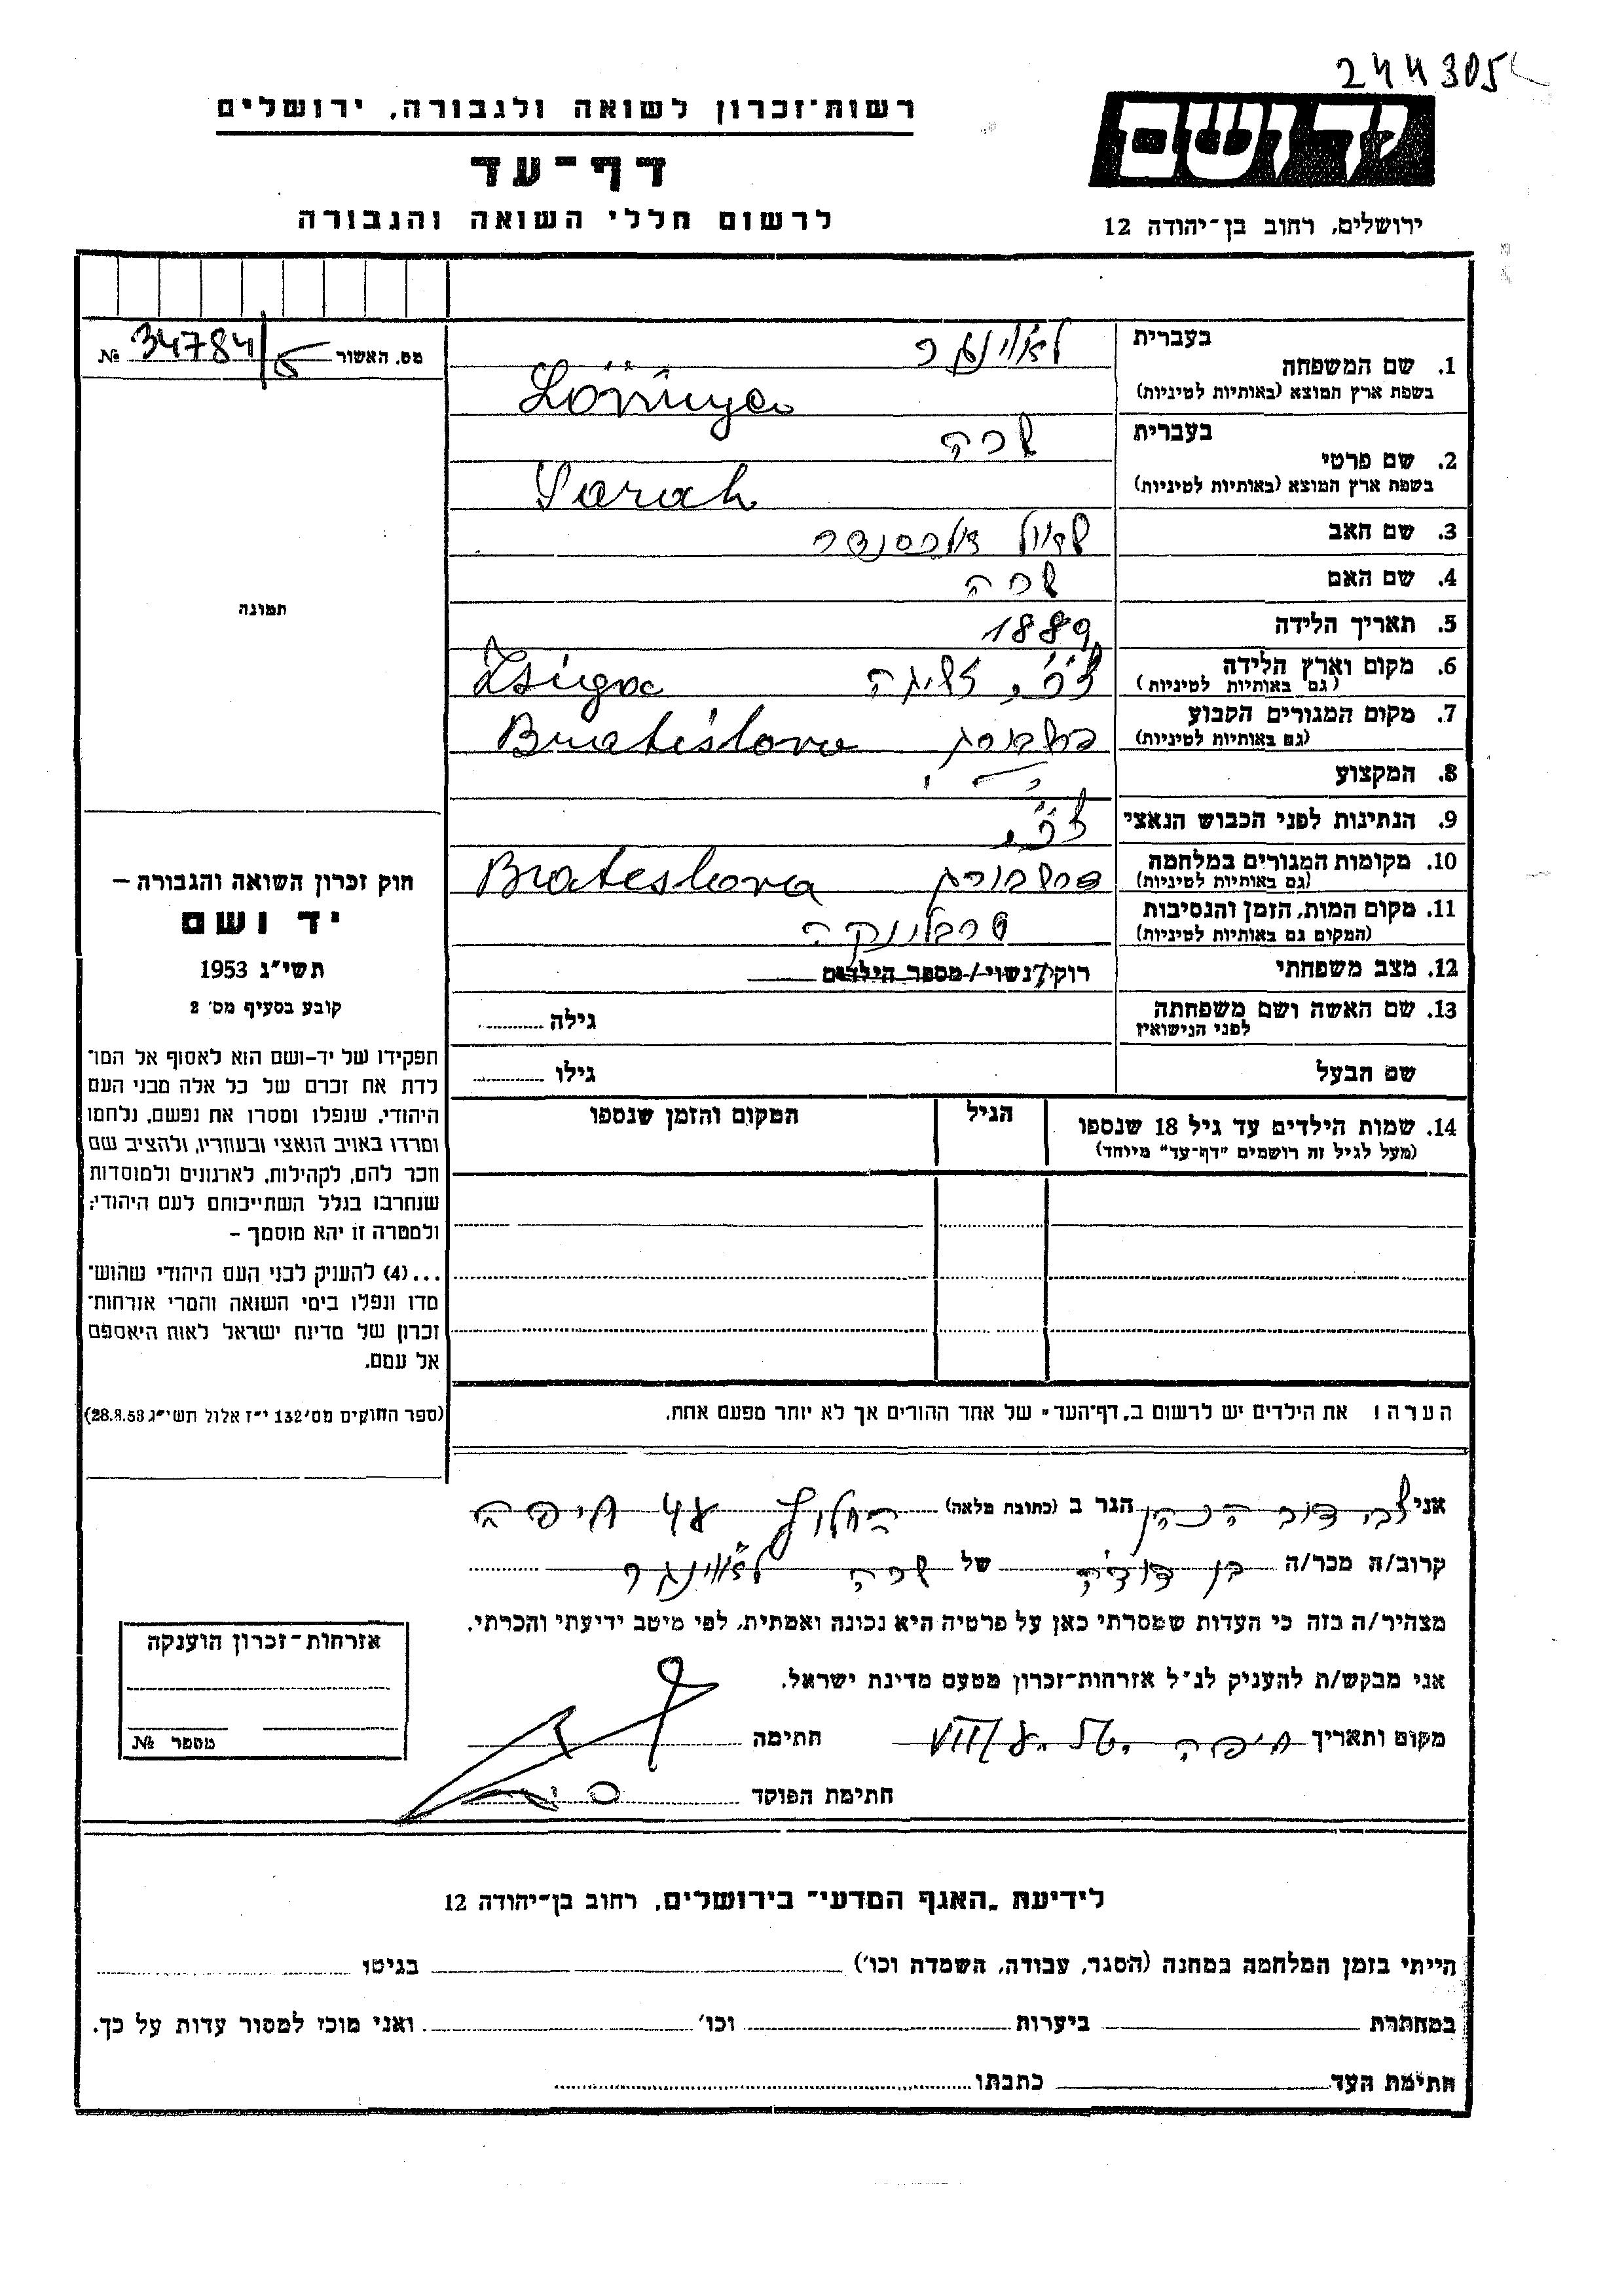 244305
רשות־זכרון לשואה ולגבורה, ירושלים
יד ושם
דף־עד
לרשום חללי השואה והגבורה
ירושלים, רחוב בן־יהודה 12
מס. האשור 34784/5 №
בעברית
1. שם המשפחה
בשפת ארץ המוצא (באותיות לטיניות)
בעברית שרה
2. שם פרטי
בשפת ארץ המוצא (באותיות לטיניות) Sarah
3. שם האב שאול אלכסנדר
4. שם האם שרה
5. תאריך הלידה 1889
6. מקום וארץ הלידה
(גם באותיות לטיניות)
7. מקום המגורים הקבוע Bratislava
(גם באותיות לטיניות)
8. המקצוע
9. הנתינות לפני הכבוש הנאצי
10. מקומות המגורים במלחמה פרשבורג Brateslava
(גם באותיות לטיניות)
11. מקום המות, הזמן והנסיבות טרבלינקה
(המקום גם באותיות לטיניות)
12. מצב משפחתי רוק/נשוי/מספר הילדים
13. שם האשה ושם משפחתה גילה
לפני הנישואין
שם הבעל גילו
14. שמות הילדים עד גיל 18 שנספו הגיל המקום והזמן שנספו
(מעל לגיל זה רושמים "דף־עד" מיוחד)
הערה: את הילדים יש לרשום ב„דף־העד" של אחד ההורים אך לא יותר מפעם אחת.
תמונה
חוק זכרון השואה והגבורה –
יד ושם
תשי"ג 1953
קובע בסעיף מס׳ 2
תפקידו של יד-ושם הוא לאסוף אל המו־
לדת את זכרם של כל אלה מבני העם
היהודי, שנפלו ומסרו את נפשם, נלחמו
ומרדו באויב הנאצי ובעוזריו, ולהציב שם
וזכר להם, לקהילות, לארגונים ולמוסדות
שנחרבו בגלל השתייכותם לעם היהודי;
ולמטרה זו יהא מוסמך –
...(4) להעניק לבני העם היהודי שהוש־
מדו ונפלו בימי השואה והמרי אזרחות־
זכרון של מדינת ישראל לאות היאספם
אל עמם.
(ספר החוקים מס׳ 132 י"ז אלול תשי"ג 28.8.53)
אני צבי דוב הכהן הגר ב (כתובת מלאה) החלוץ חיפה
קרוב/ה מכר/ה בן דודה של שרה
מצהיר/ה בזה כי העדות שמסרתי כאן על פרטיה היא נכונה ואמתית, לפי מיטב ידיעתי והכרתי.
אני מבקש/ת להעניק לנ"ל אזרחות־זכרון מטעם מדינת ישראל.
מקום ותאריך חיפה חתימה
חתימת הפוקד
אזרחות־זכרון הוענקה
מספר №
לידיעת „האגף המדעי" בירושלים, רחוב בן־יהודה 12
הייתי בזמן המלחמה במחנה (הסגר, עבודה, השמדה וכו׳) בגיטו
במחתרת ביערות וכו׳ ואני מוכז למסור עדות על כך.
חתימת העד כתבתו